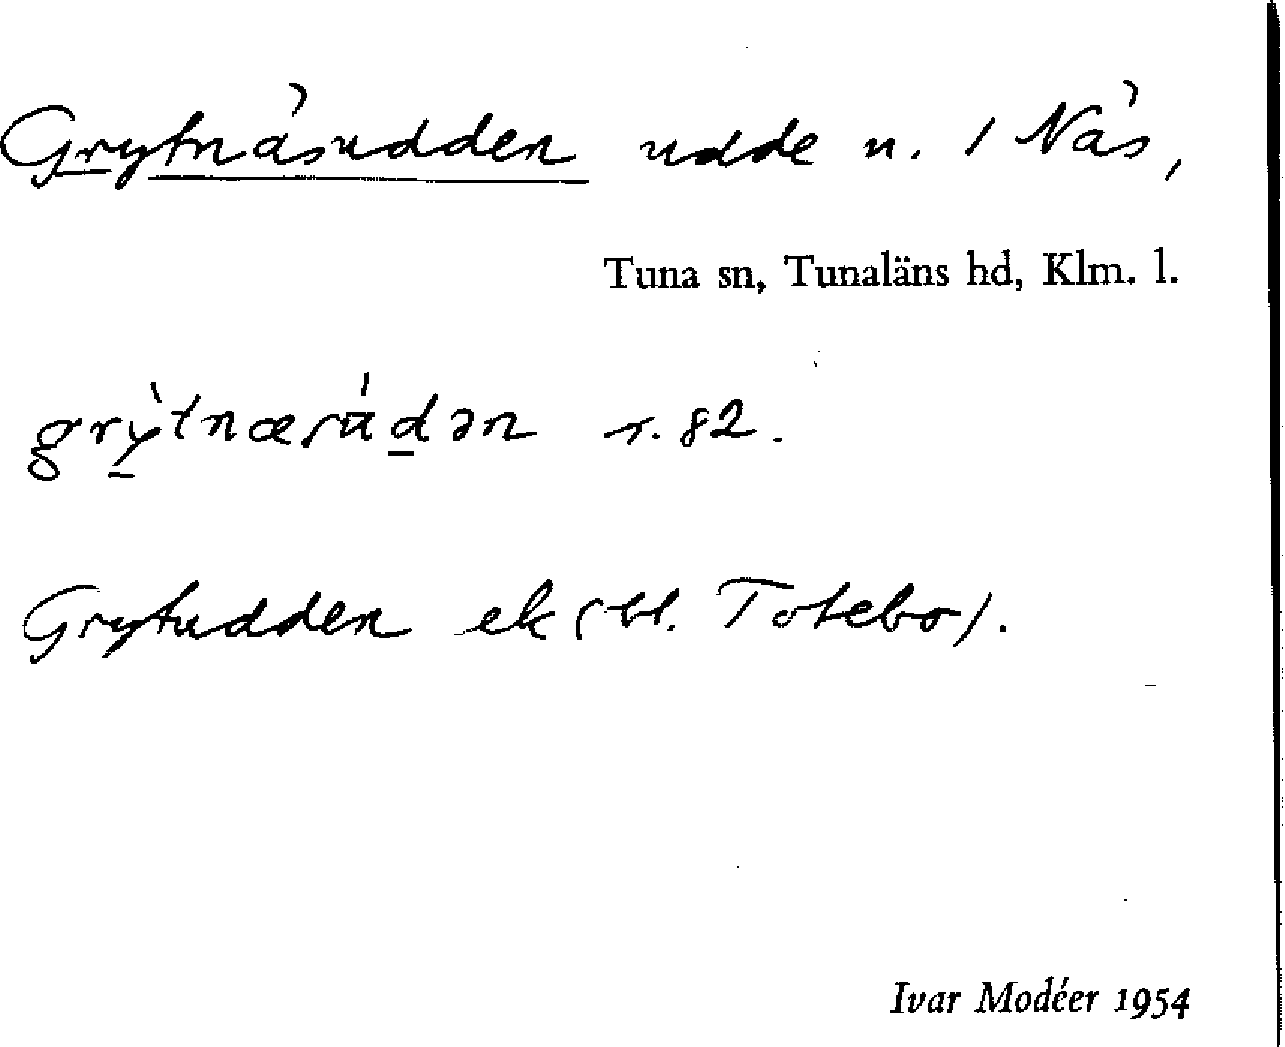 Grytnäsudden udde n. / Näs,
Tuna sn, Tunaläns hd, Klm. l.
grỳtnæsúdən s. 82.
Grytudden ek (bl. Totebo).
Ivar Modéer 1954